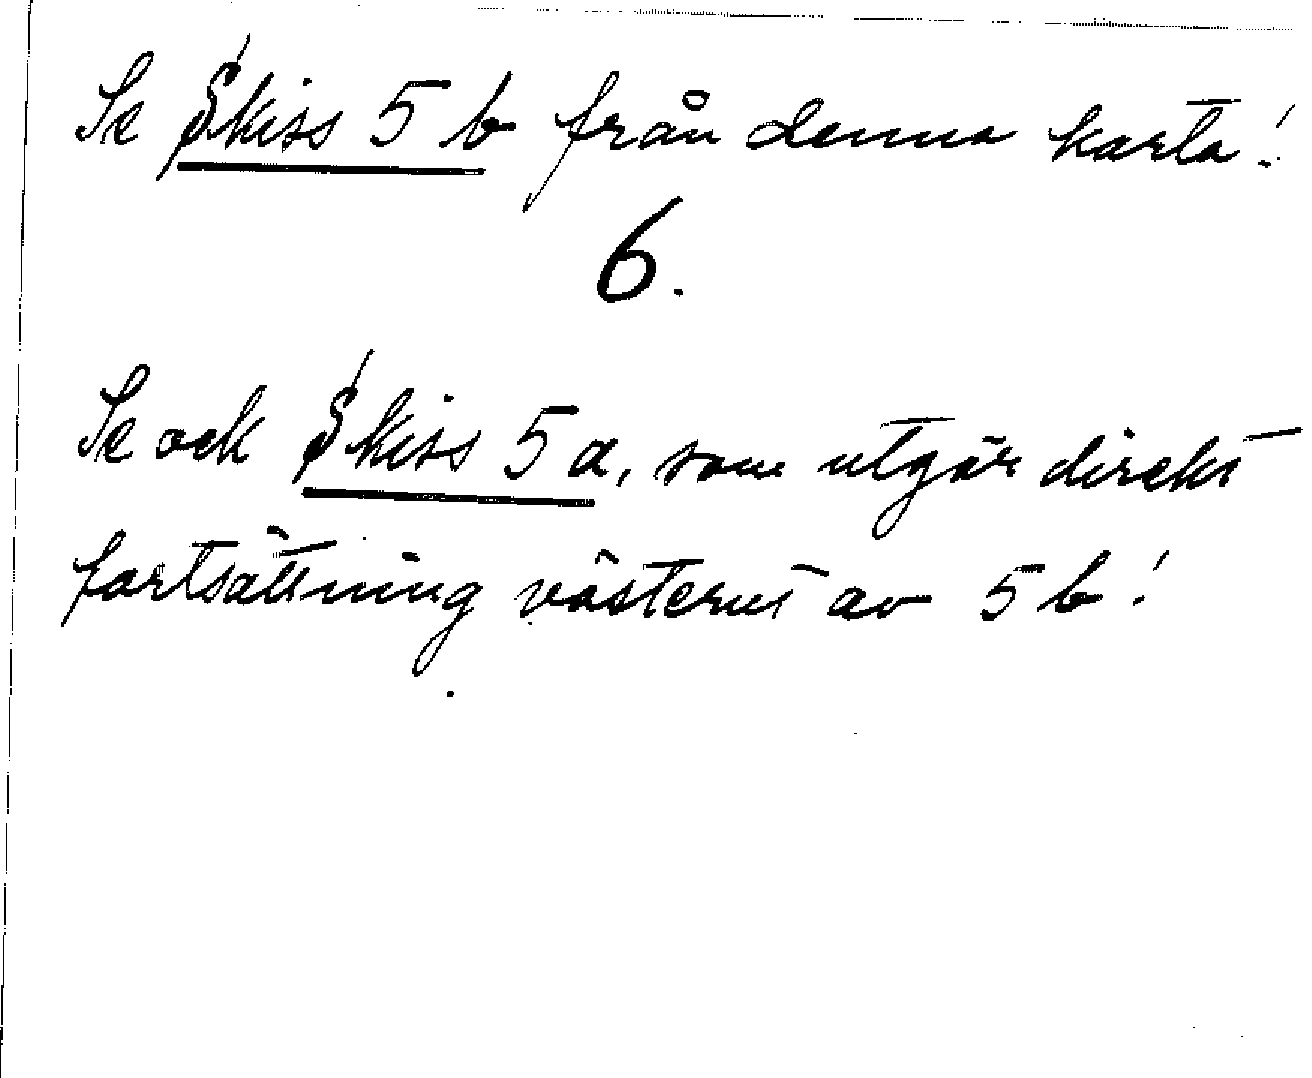 Se Skiss 5 b från denna karta!
6.
Se ock Skiss 5 a, som utgör direkt
fortsättning västerut av 5 b!